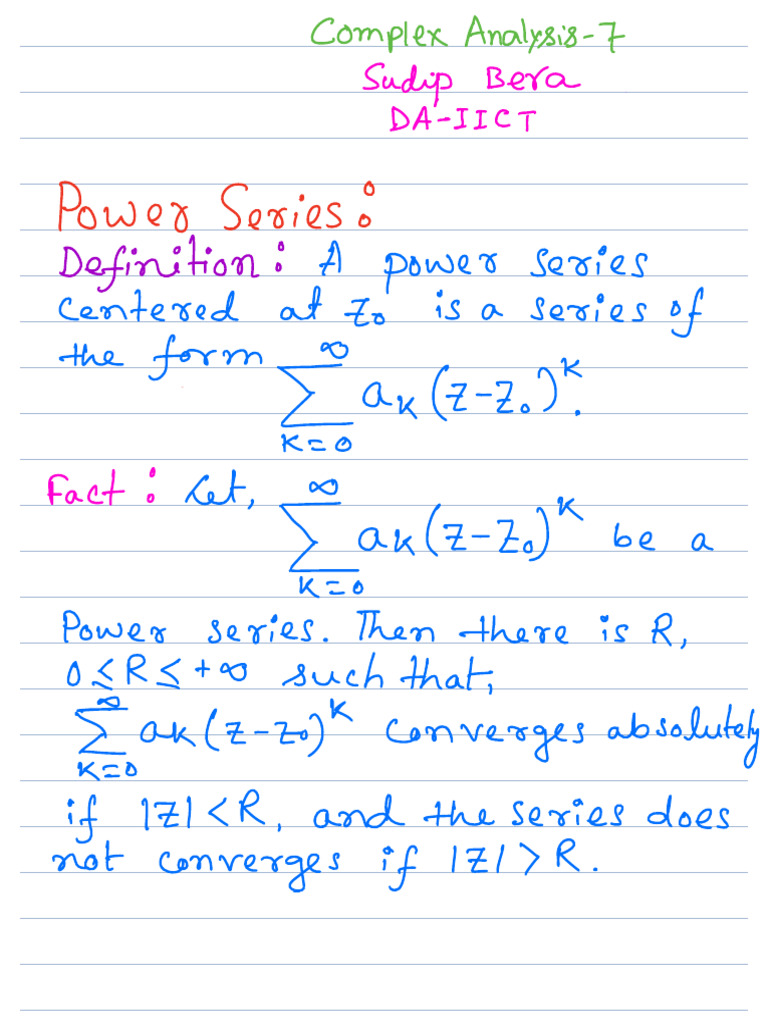 Complex Analysis-7
Sudip Bera
DA-IICT
Power Series:
Definition: A power series
centered at z₀ is a series of
the form ∞
∑ aₖ(z-z₀)ᵏ.
k=0
Fact: Let, ∞
∑ aₖ(z-z₀)ᵏ be a
k=0
Power series. Then there is R,
0≤R≤+∞ such that,
∞
∑ aₖ(z-z₀)ᵏ converges absolutely
k=0
if |z|<R, and the series does
not converges if |z|>R.